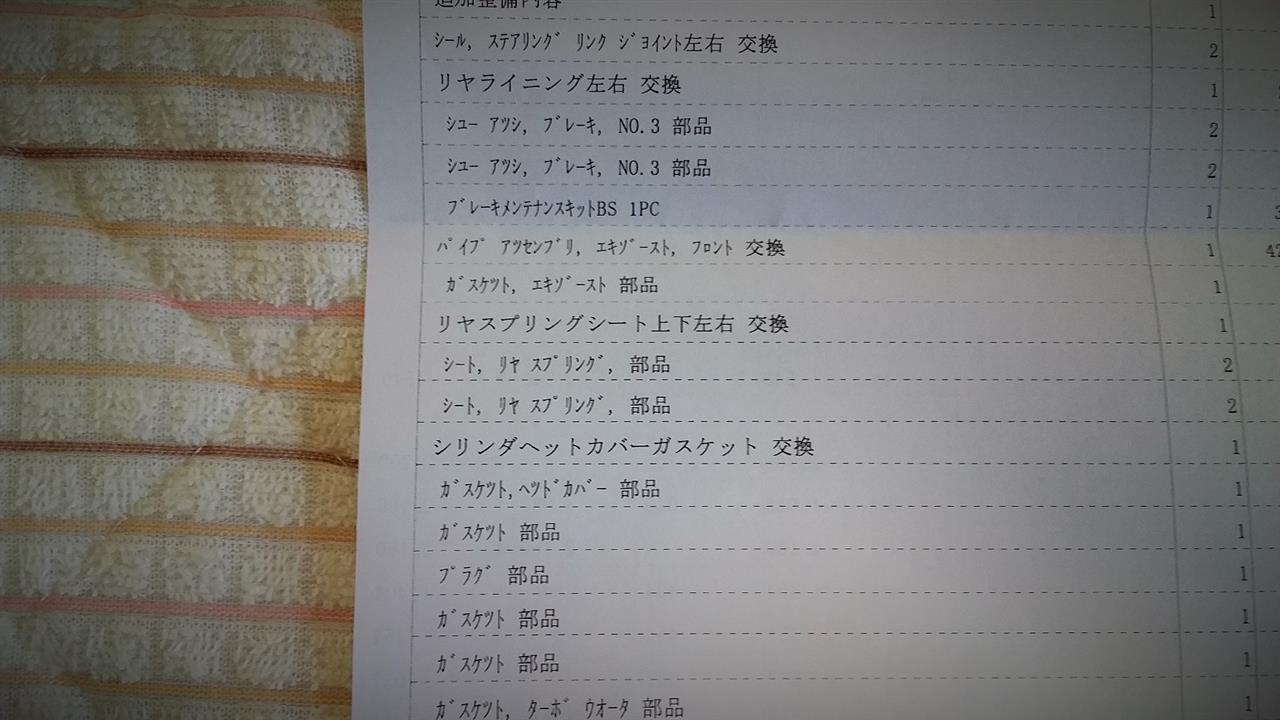 追加整備内容 1
ｼｰﾙ, ｽﾃｱﾘﾝｸﾞ ﾘﾝｸ ｼﾞﾖｲﾝﾄ左右 交換 2
リヤライニング左右 交換 1
ｼﾕｰ ｱﾂｼ, ﾌﾞﾚｰｷ, NO.3 部品 2
ｼﾕｰ ｱﾂｼ, ﾌﾞﾚｰｷ, NO.3 部品 2
ﾌﾞﾚｰｷﾒﾝﾃﾅﾝｽｷｯﾄBS 1PC 1
ﾊﾟｲﾌﾟ ｱﾂｾﾝﾌﾞﾘ, ｴｷｿﾞｰｽﾄ, ﾌﾛﾝﾄ 交換 1 42
ｶﾞｽｹﾂﾄ, ｴｷｿﾞｰｽﾄ 部品 1
リヤスプリングシート上下左右 交換 1
ｼｰﾄ, ﾘﾔ ｽﾌﾟﾘﾝｸﾞ, 部品 2
ｼｰﾄ, ﾘﾔ ｽﾌﾟﾘﾝｸﾞ, 部品 2
シリンダヘットカバーガスケット 交換 1
ｶﾞｽｹﾂﾄ,ﾍﾂﾄﾞｶﾊﾞｰ 部品 1
ｶﾞｽｹﾂﾄ 部品 1
ﾌﾟﾗｸﾞ 部品 1
ｶﾞｽｹﾂﾄ 部品 1
ｶﾞｽｹﾂﾄ 部品 1
ｶﾞｽｹﾂﾄ, ﾀｰﾎﾞ ｳｵｰﾀ 部品 1